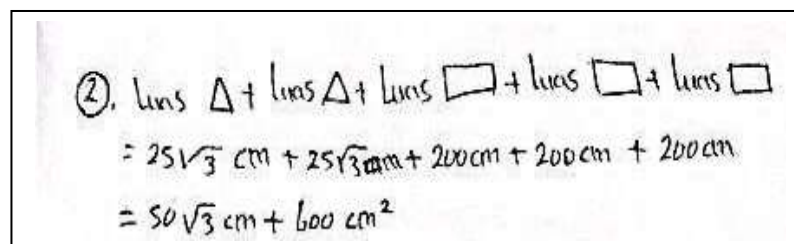 ②. luas △ + luas △ + luas ▭ + luas ▭ + luas ▭
= 25√3 cm + 25√3 cm + 200cm + 200cm + 200cm
= 50√3 cm + 600 cm²